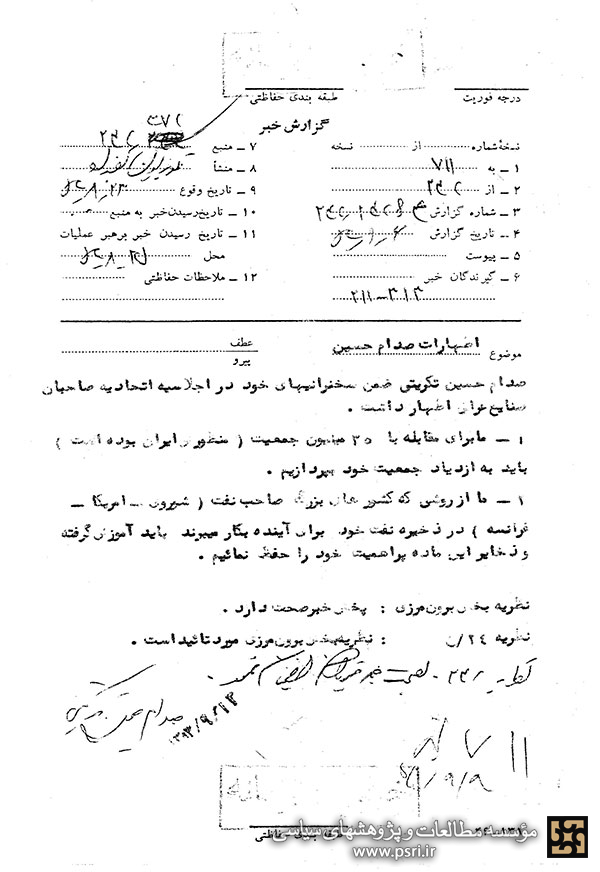 درجه فوریت
طبقه بندی حفاظتی
گزارش خبر
نسخهٔ شماره از نسخه
۱ ـ به ۷۱۱
۲ ـ از
۳ ـ شماره گزارش
۴ ـ تاریخ گزارش
۵ ـ پیوست
۶ ـ گیرندگان خبر
۲۱۱ - ۳۱۳
۷ ـ منبع
۸ ـ منشأ
۹ ـ تاریخ وقوع
۱۰ ـ تاریخ رسیدن خبر به منبع
۱۱ ـ تاریخ رسیدن خبر برهبر عملیات
محل
۱۲ ـ ملاحظات حفاظتی
موضوع اظهارات صدام حسین
عطف
پیرو
صدام حسین تکریتی ضمن سخنرانیهای خود در اجلاسیه اتحادیه صاحبان
صنایع عراق اظهار داشت .
۱ ـ ما برای مقابله با ۳۵ میلیون جمعیت ( منظور ایران بوده است )
باید به ازدیاد جمعیت خود بپردازیم .
۱ ـ ما از روشی که کشور های بزرگ صاحب نفت ( شوروی ـ امریکا ـ
فرانسه ) در ذخیره نفت خود برای آینده بکار میبرند باید آموزش گرفته
و ذخایر این ماده پراهمیت خود را حفظ نمائیم .
نظریه بخش برون مرزی : پخش خبر صحت دارد .
نظریه ۲۴ / ن : نظریه بخش برون مرزی مورد تائید است .
طبقه بندی حفاظتی
مؤسسه مطالعات و پژوهشهای سیاسی
www.psri.ir